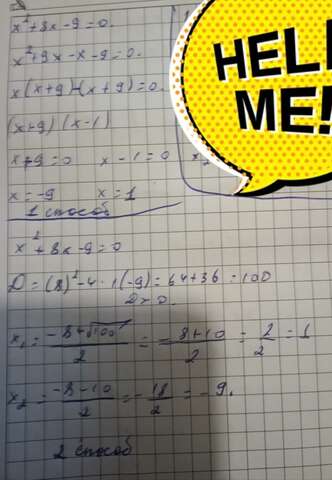 x² + 8x - 9 = 0.
x² + 9x - x - 9 = 0.
x(x+9) - (x+9) = 0.
(x+9)(x-1)
x+9=0 x-1=0
x=-9 x=1
1 способ
x² + 8x - 9 = 0
D = (8)² - 4 · 1(-9) = 64 + 36 = 100
D > 0.
x₁ = (-8+√100)/2 = (-8+10)/2 = 2/2 = 1
x₂ = (-8-10)/2 = -18/2 = -9.
2 способ
HELP
ME!